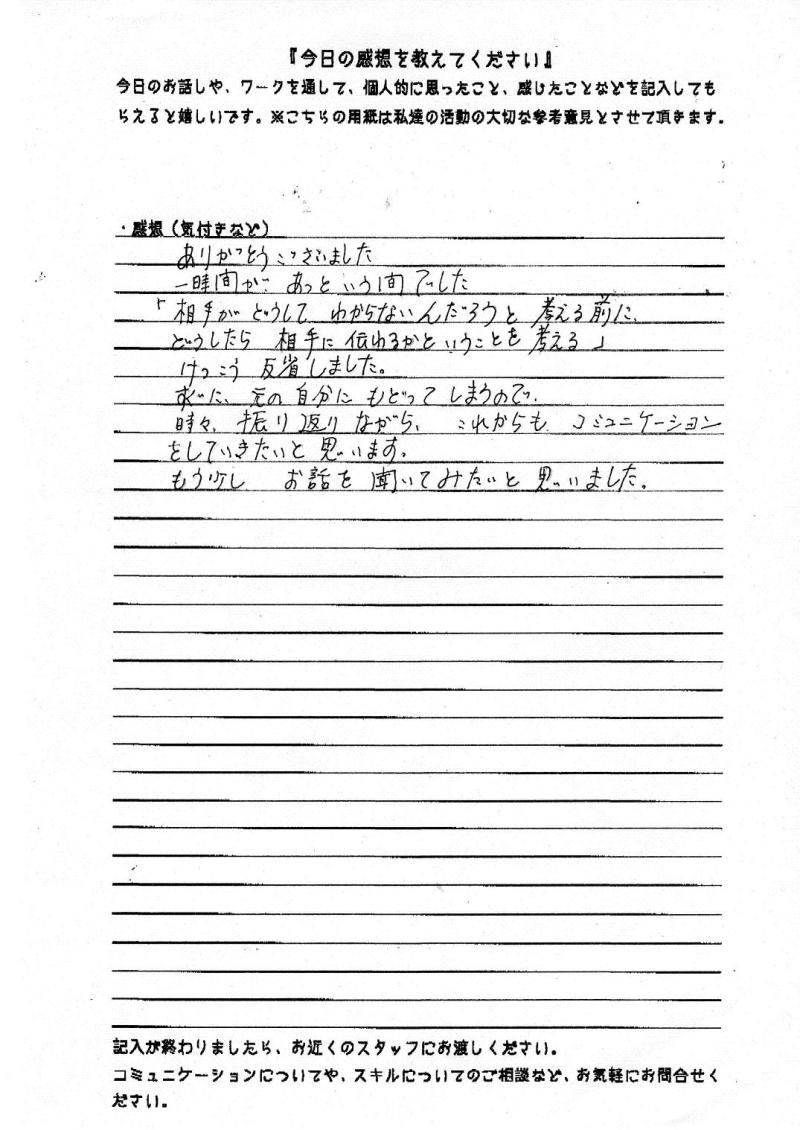 『今日の感想を教えてください』
今日のお話しや、ワークを通して、個人的に思ったこと、感じたことなどを記入しても
らえると嬉しいです。※こちらの用紙は私達の活動の大切な参考意見とさせて頂きます。
・感想（気付きなど）
ありがとうございました
一時間が あっという間でした
「相手が どうして わからないんだろうと 考える前に、
どうしたら 相手に 伝わるかということを 考える」
けっこう 反省しました。
すぐに、元の自分に もどってしまうので、
時々、振り返りながら、これからも コミュニケーション
をしていきたいと思います。
もう少し お話を 聞いてみたいと 思いました。
記入が終わりましたら、お近くのスタッフにお渡しください。
コミュニケーションについてや、スキルについてのご相談など、お気軽にお問合せく
ださい。